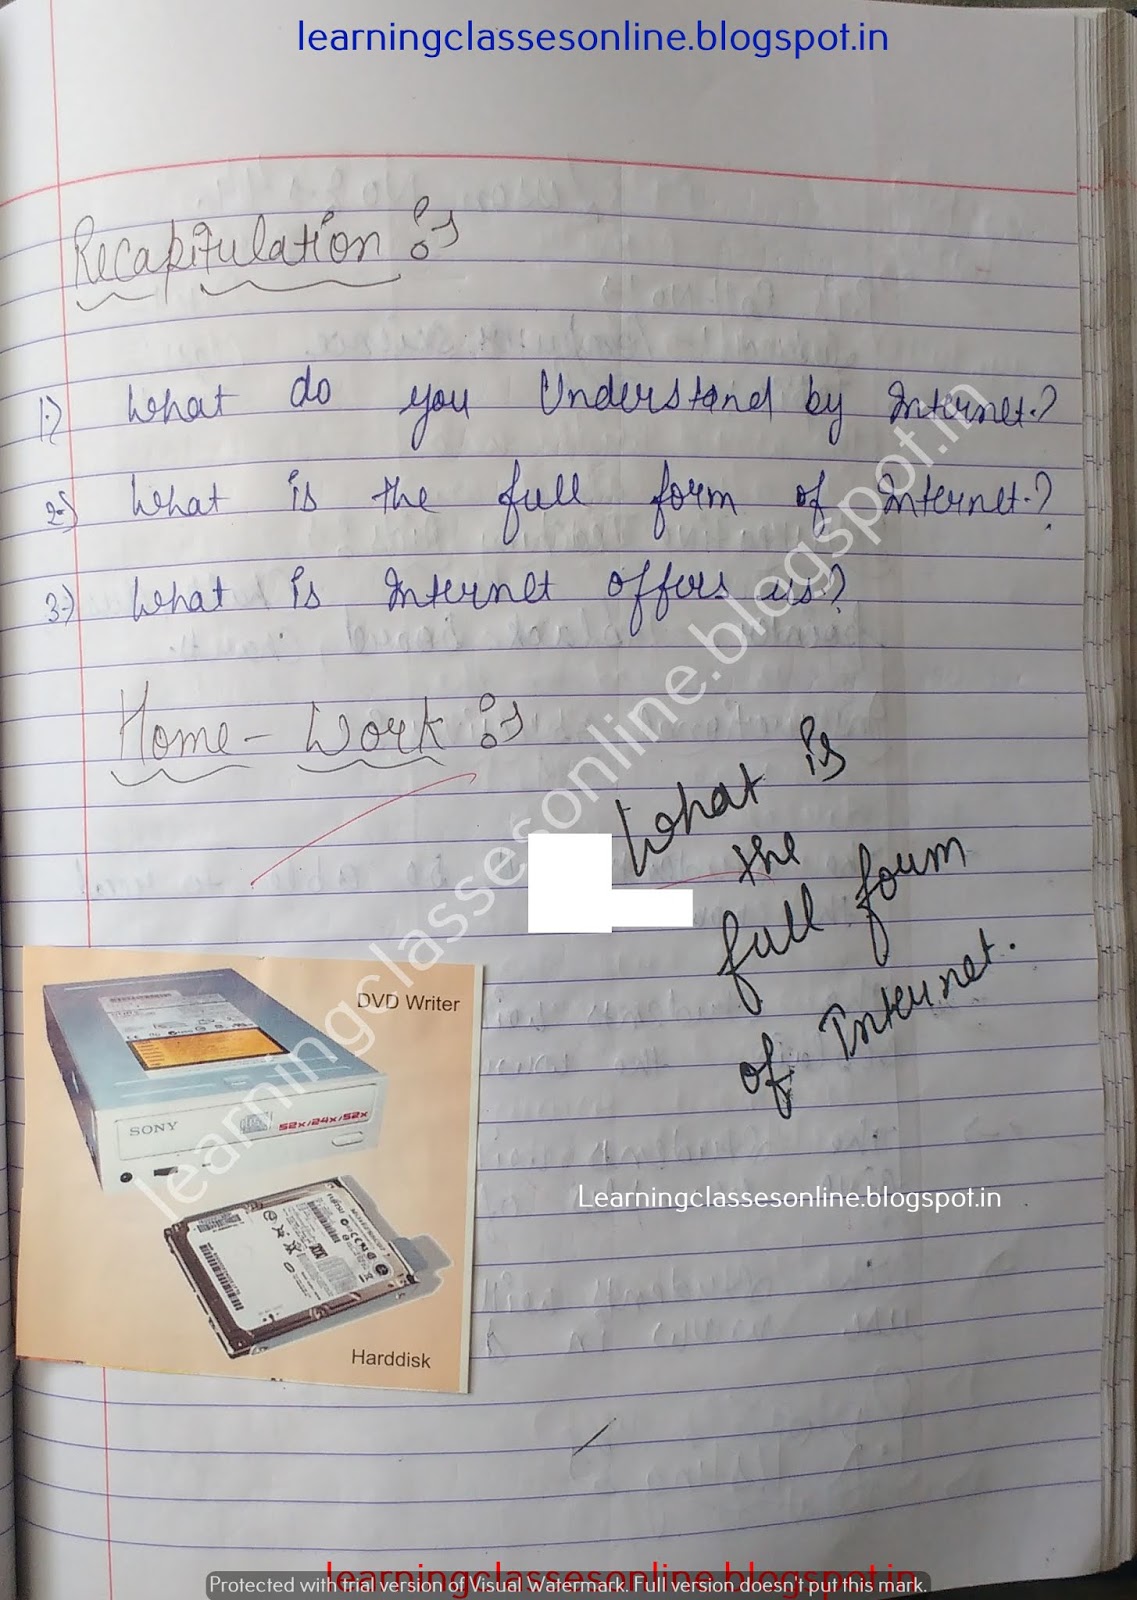 learningclassesonline.blogspot.in
Recapitulation :
1.) What do you Understand by Internet.?
2.) What is the full form of Internet.?
3.) What is Internet offers us?
Home-Work :
What is
the
full form
of Internet.
DVD Writer
SONY
52x/24x/52x
Harddisk
learningclassesonline.blogspot.in
Learningclassesonline.blogspot.in
learningclassesonline.blogspot.in
Protected with trial version of Visual Watermark. Full version doesn't put this mark.